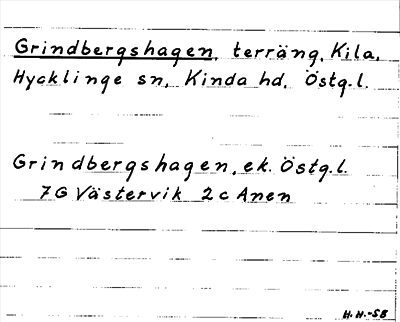 Grindbergshagen, terräng, Kila,
Hycklinge sn, Kinda hd, Östg.l.
Grindbergshagen, ek. Östg.l.
7G Västervik 2c Anen
H.H.-58